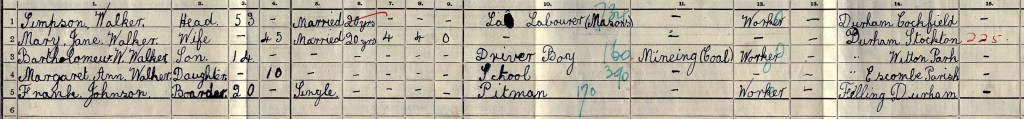 1. 2. 3. 4. 5. 6. 7. 8. 9. 10. 11. 12. 13. 14. 15.
1 Simpson Walker. Head. 53 - Married 20 yrs - - - Labourer (Masons) - Worker - Durham Cockfield -
2 Mary Jane Walker. Wife - 45 Married 20 yrs 4 4 0 - - - - Durham Stockton 225.
3 Bartholomew W. Walker Son. 14 - - - - - - Driver Boy 160 Mineing (Coal) Worker - " Witton Park -
4 Margaret Ann. Walker. Daughter - 10 - - - - - School 390 - - - " Escombe Parish -
5 Frank Johnson. Boarder. 20 - Single. - - - - Pitman 170 - Worker - Felling Durham -
6